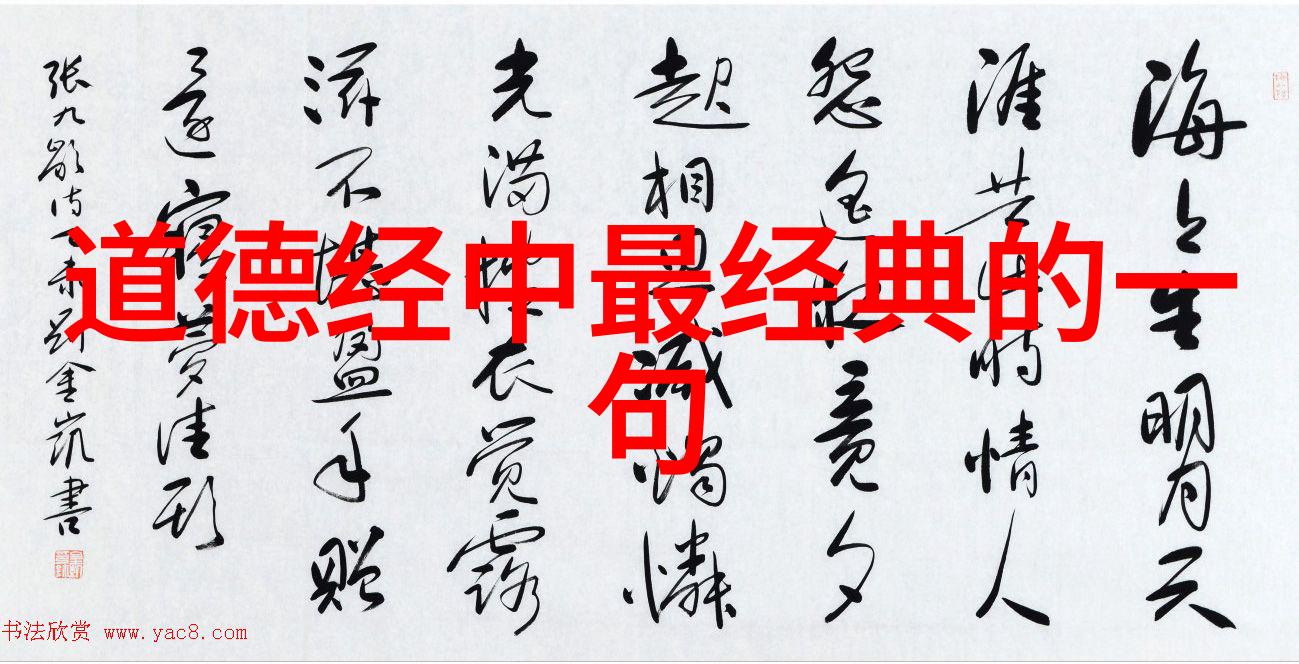 道德经中最经典的一
句
海上生明月天
涯共此时情人
怨遥夜竟夕
起相思滅燭憐
光满披衣觉露
滋不堪盈手赠
還寝夢佳期
张九龄诗一首 金凯書
书法欣赏 www.yac8.com